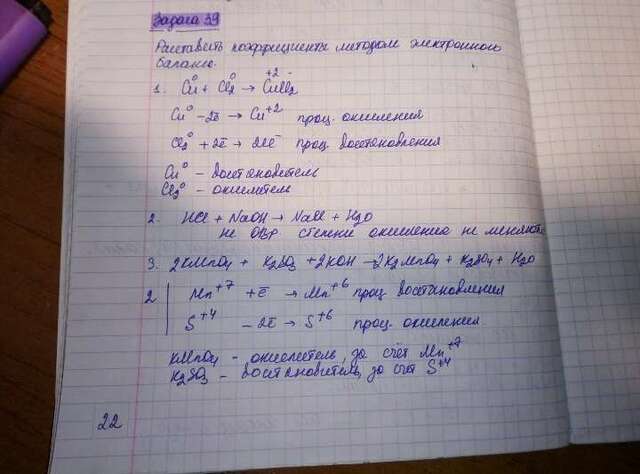 Задача 39
Расставить коэффициенты методом электронного
баланса.
+2 -
1. Cu⁰ + Cl₂⁰ → CuCl₂
Cu⁰ - 2ē → Cu⁺² проц. окисления
Cl₂⁰ + 2ē → 2Cl⁻ проц. восстановления
Cu⁰ - восстановитель
Cl₂⁰ - окислитель
2. HCl + NaOH → NaCl + H₂O
не ОВР. степени окисления не меняются
3. 2KMnO₄ + K₂SO₃ + 2KOH → 2K₂MnO₄ + K₂SO₄ + H₂O
2 | Mn⁺⁷ + ē → Mn⁺⁶ проц восстановления
S⁺⁴ - 2ē → S⁺⁶ проц. окисления
KMnO₄ - окислитель, за счёт Mn⁺⁷
K₂SO₃ - восстановитель, за счёт S⁺⁴
22